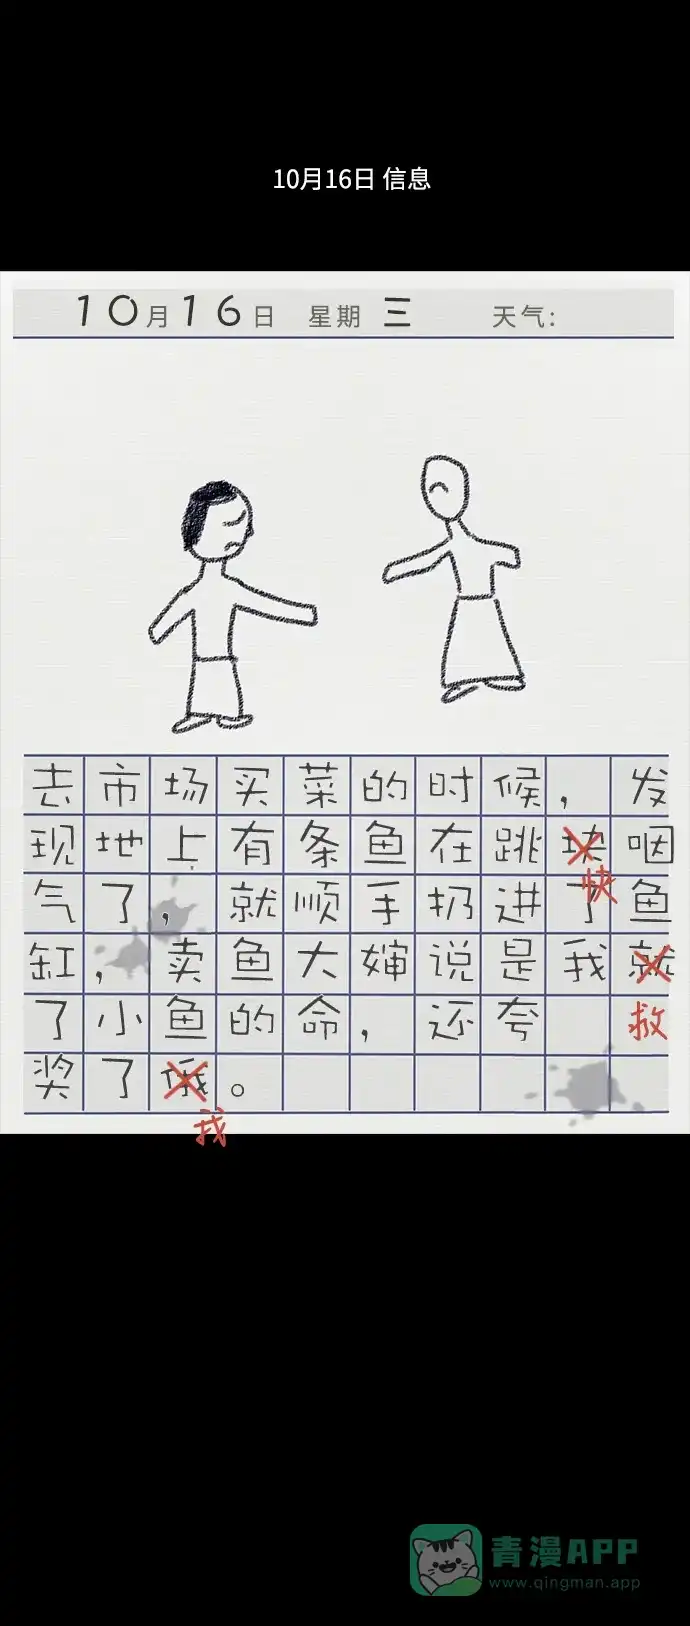 10月16日 信息
10月16日 星期 三 天气:
去市场买菜的时候，发
现地上有条鱼在跳块咽
快
气了，就顺手扔进了鱼
缸，卖鱼大婶说是我就
了小鱼的命，还夸 救
奖了俄。
我
青漫APP
www.qingman.app